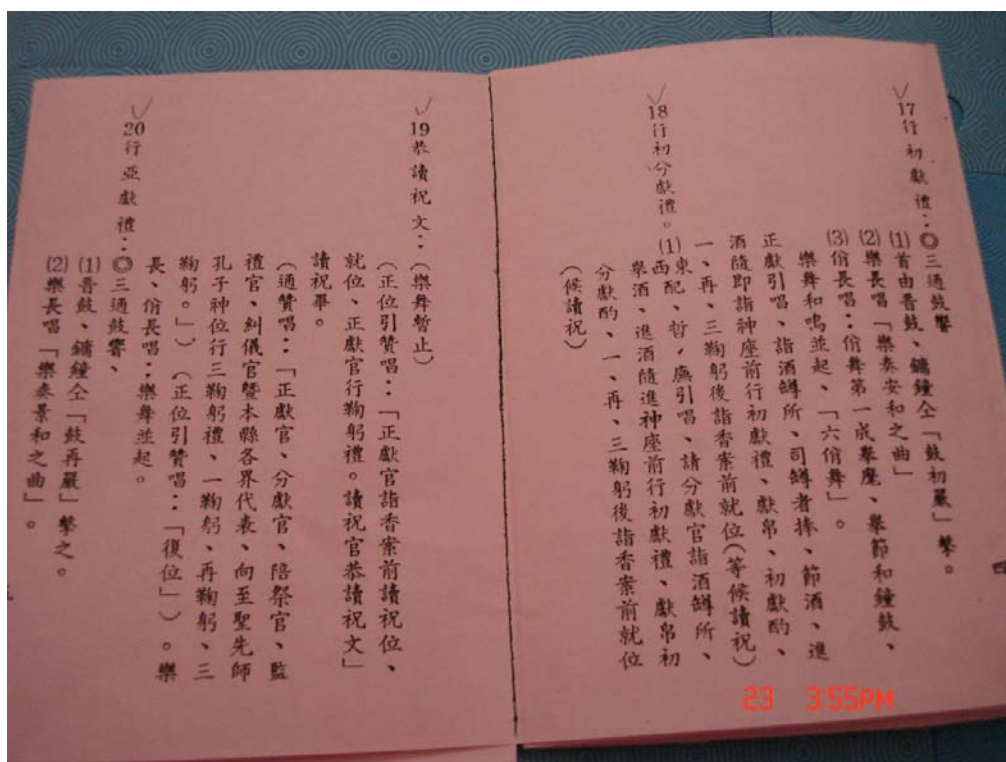 17行初獻禮：◎三通鼓響
(1)首由晋鼓、鏞鐘仝「鼓初嚴」擊。
(2)樂長唱「樂奏安和之曲」
(3)佾長唱：佾舞第一成舉麾、舉節和鐘鼓、
樂舞和鳴並起、「六佾舞」。
正獻引唱、詣酒罇所、司罇者捧、節酒、進
酒隨即詣神座前行初獻禮、獻帛、初獻酌、
一、再、三鞠躬後詣香案前就位(等候讀祝)
18行初分獻禮。(1)東配、哲，廡引唱、請分獻官詣酒罇所、
西
舉酒、進酒隨進神座前行初獻禮、獻帛初
分獻酌、一、再、三鞠躬後詣香案前就位
(候讀祝)
四
19恭讀祝文：(樂舞暫止)
(正位引贊唱：「正獻官詣香案前讀祝位、
就位、正獻官行鞠躬禮。讀祝官恭讀祝文」
讀祝畢。
(通贊唱：「正獻官、分獻官、陪祭官、監
禮官、糾儀官暨本縣各界代表、向至聖先師
孔子神位行三鞠躬禮、一鞠躬、再鞠躬、三
鞠躬。」)(正位引贊唱：「復位」)。樂
長、佾長唱：樂舞並起。
20行亞獻禮：◎三通鼓響、
(1)晋鼓、鏞鐘仝「鼓再嚴」擊之。
(2)樂長唱「樂奏景和之曲」。
23 3:55PM